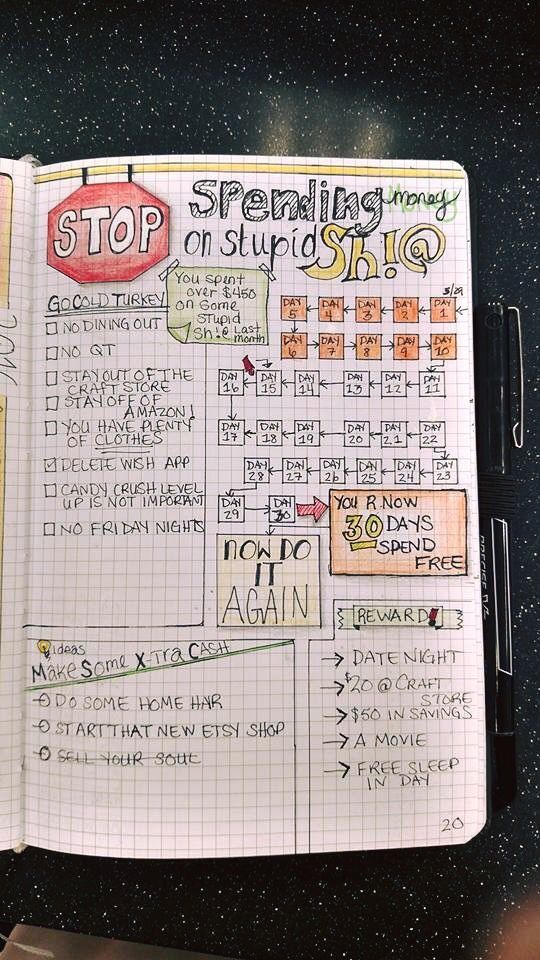 STOP
Spending Money
on stupid Sh!@
GO COLD TURKEY
NO DINING OUT
NO QT
STAY OUT OF THE
CRAFT STORE
STAY OFF OF
AMAZON!
YOU HAVE PLENTY
OF CLOTHES
DELETE WISH APP
CANDY CRUSH LEVEL
UP IS NOT IMPORTANT
NO FRIDAY NIGHTS
You spent
over $450
on Some
Stupid
Sh!@ Last
month
3/29
DAY 5 DAY 4 DAY 3 DAY 2 DAY 1
DAY 6 DAY 7 DAY 8 DAY 9 DAY 10
DAY 16 DAY 15 DAY 14 DAY 13 DAY 12 DAY 11
DAY 17 DAY 18 DAY 19 DAY 20 DAY 21 DAY 22
DAY 28 DAY 27 DAY 26 DAY 25 DAY 24 DAY 23
DAY 29 DAY 30
YOU R NOW
30 DAYS
SPEND
FREE
NOW DO
IT
AGAIN
REWARD!
DATE NIGHT
$20 @ CRAFT
STORE
$50 IN SAVINGS
A MOVIE
FREE SLEEP
IN DAY
ideas
Make Some X-tra Cash
DO SOME HOME HAIR
START THAT NEW ETSY SHOP
SELL YOUR SOUL
20